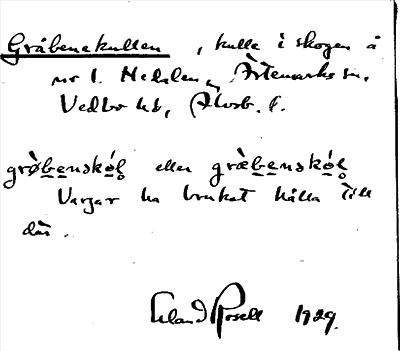 Gråbenekullen, kulle i skogen å
nr 1. Hedalen, Ärtemarks sn.
Vedbo hd, Älvsb. l.
grø̀benskó̀l̥ eller græ̀benskó̀l̥
Vargar ha brukat hålla till
där.
Erland Rosell 1929.